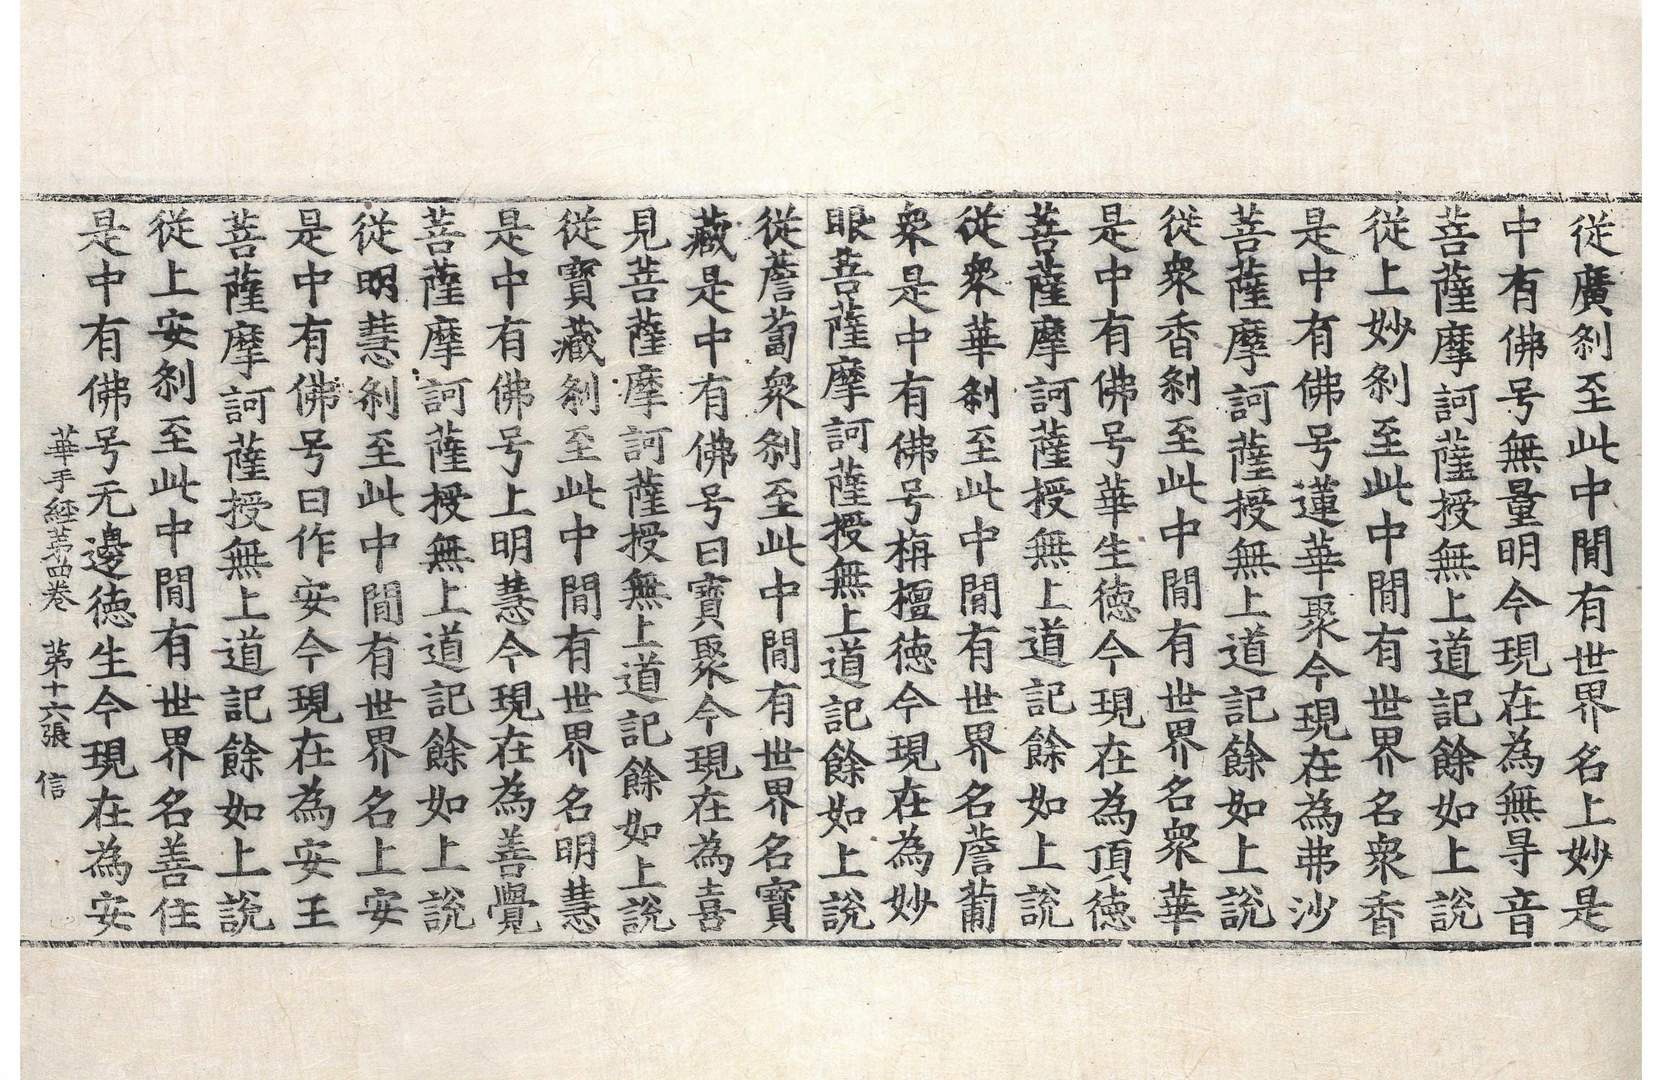 從廣刹至此中閒有世界名上妙是
中有佛号無量明今現在為無㝵音
菩薩摩訶薩授無上道記餘如上說
從上妙刹至此中閒有世界名衆香
是中有佛号蓮華聚今現在為弗沙
菩薩摩訶薩授無上道記餘如上說
從衆香刹至此中閒有世界名衆華
是中有佛号華生徳今現在為頂徳
菩薩摩訶薩授無上道記餘如上說
從衆華刹至此中閒有世界名薝蔔
衆是中有佛号栴檀徳今現在為妙
眼菩薩摩訶薩授無上道記餘如上說
從薝蔔衆刹至此中閒有世界名寶
藏是中有佛号曰寶聚今現在為喜
見菩薩摩訶薩授無上道記餘如上說
從寶藏刹至此中閒有世界名明慧
是中有佛号上明慧今現在為善覺
菩薩摩訶薩授無上道記餘如上說
從明慧刹至此中閒有世界名上安
是中有佛号曰作安今現在為安王
菩薩摩訶薩授無上道記餘如上說
從上安刹至此中閒有世界名善住
是中有佛号无邊徳生今現在為安
華手經第四卷 第十六張 信